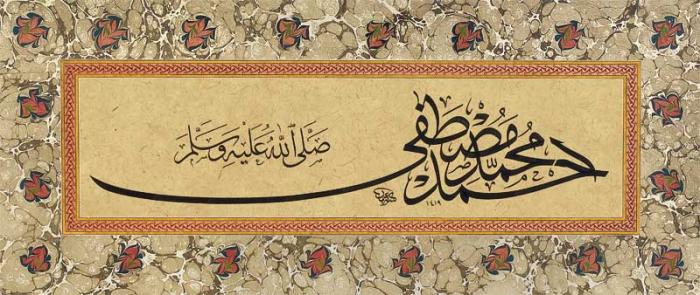 احمد محمد مصطفى
صَلَّى اللّٰهُ عَلَيْهِ وَسَلَّمَ
١٤١٩